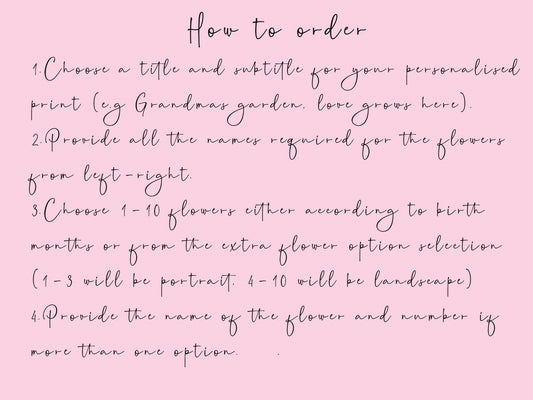 How to order
1.Choose a title and subtitle for your personalised
print (e.g Grandmas garden. love grows here).
2.Provide all the names required for the flowers
from left-right.
3.Choose 1-10 flowers either according to birth
months or from the extra flower option selection
(1-3 will be portrait. 4-10 will be landscape)
4.Provide the name of the flower and number if
more than one option. .